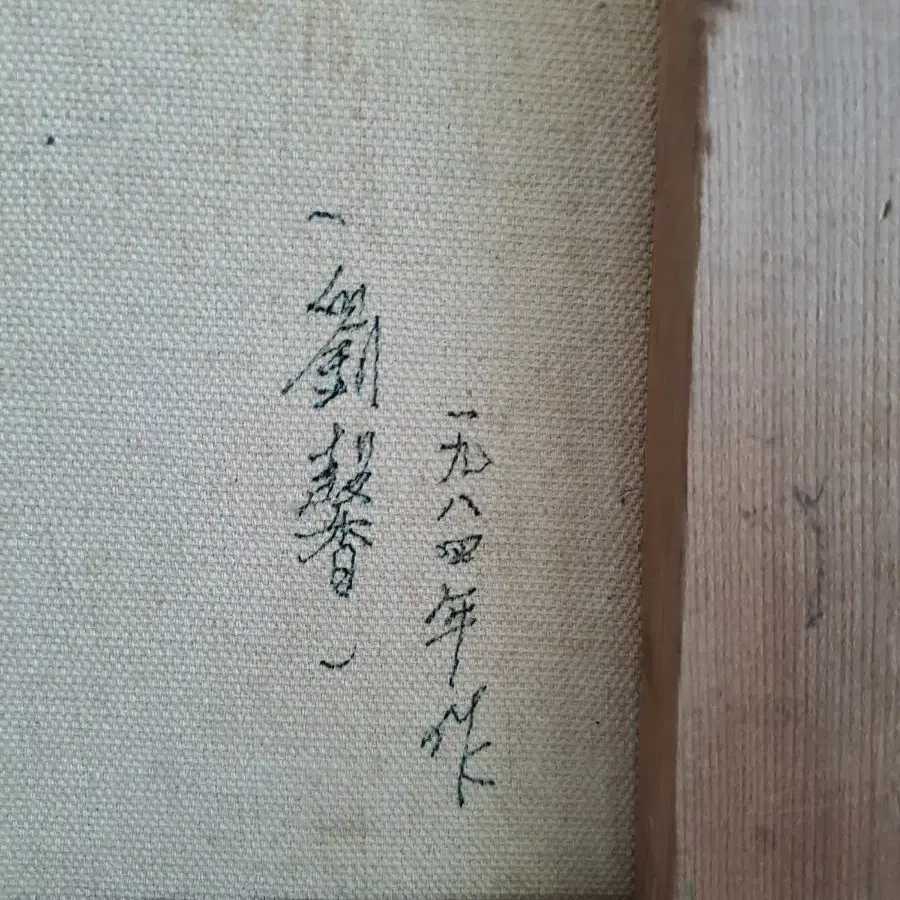 一九八四年作
(劉馨)